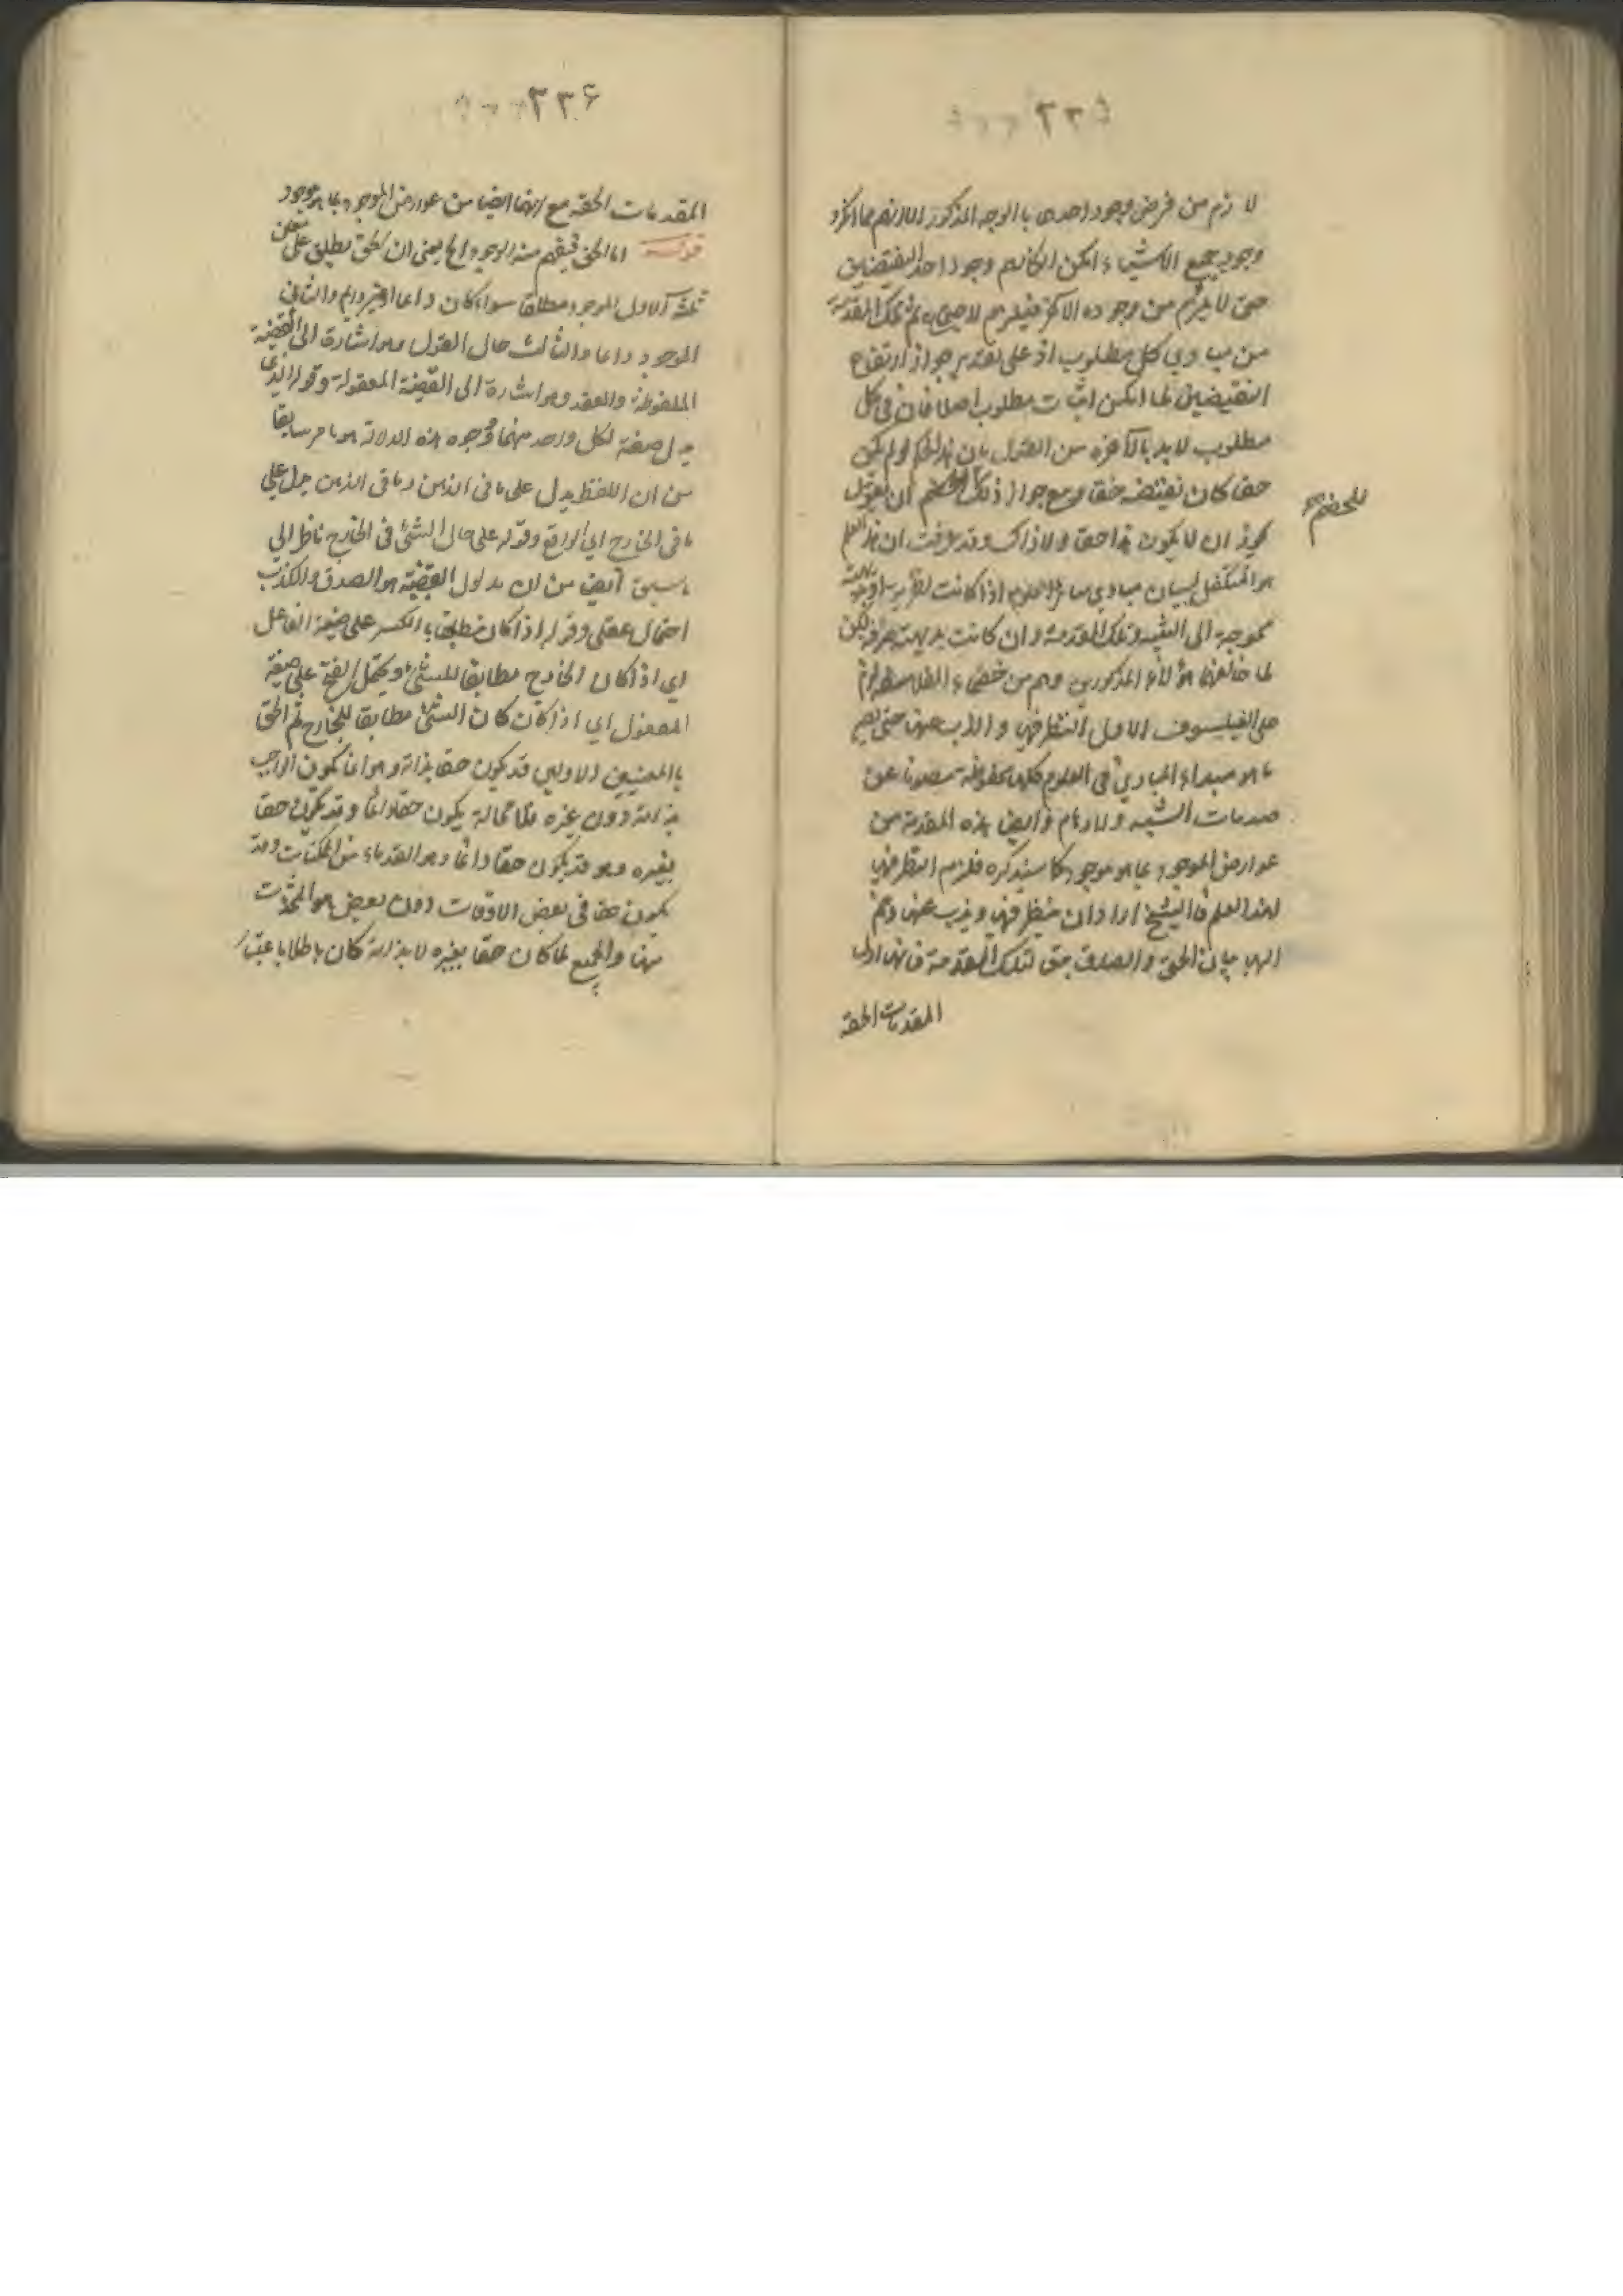 ٢٢٥
لازم من فرض وجود احدى بالوجه المذكور
وجود جميع الاشياء امكن وجود احد النقيضين
حتى لا يلزم من وجوده الاخر فيلزم ثم تلك المقدمة
من مبادي كل مطلوب اذ على تقدير جواز ارتفاع
النقيضين لما امكن اثبات مطلوب اصلا فان في كل
مطلوب لابد بالآخرة من القول بان هذا لو لم يكن
حقا كان نقيضه حقا ومع جواز ذلك ان يقول
يجوز ان لا يكون هذا حقا ولا ذاك وقد عرفت ان هذا العلم
للخصم
هو المتكفل لبيان مبادي سائر العلوم اذا كانت نظرية او
محوجة الى التنبيه وتلك المقدمة وان كانت بديهية لكن
لما خالفها هؤلاء المذكورين وهم من
على الفيلسوف الاول النظر فيها والذب عنها حتى
ما هو مبداء المبادي في العلوم كلها محفوظة مصونا عن
صدمات الشبه والاوهام وايضا هذه المقدمة من
عوارض الموجود بما هو موجود كما سيذكره فلزم النظر فيها
لهذا العلم فالشيخ اراد ان ينظر فيها ويذب عنها
اليها بيان الحق والصدق حتى تلك المقدمة فانها اول
المقدمات الحقه
٢٢٦
المقدمات الحقه مع انها ايضا من عوارض الموجود بما هو موجود
قوله اما الحق فيفهم منه الوجود الخ يعني ان الحق يطلق على معان
ثلثة الاول الموجود مطلقا سواء كان دائما او غير دايم والثاني
الموجود دائما والثالث حال القول وهو اشارة الى القضية
الملفوظة والعقد وهو اشارة الى القضية المعقولة وقوله الذي
يدل صفة لكل واحد منهما ووجوه هذه الدلالة هو ما مر سابقا
من ان اللفظ يدل على ما في الذهن وما في الذهن يدل على
ما في الخارج اي الواقع وقوله على حال الشئ في الخارج ناظر الى
ما سبق ايضا من ان مدلول القضية هو الصدق والكذب
احتمال عقلي وقوله اذا كان مطابقا بالكسر على صيغة الفاعل
اي اذا كان الخارج مطابقا للشئ ويحتمل الفتح على صيغة
المفعول اي اذا كان كان الشئ مطابقا للخارج ثم الحق
بالمعنيين الاولين قد يكون حقا بذاته وهو انما يكون الواجب
بذاته دون غيره فلا محالة يكون حقا دائما وقد يكون حقا
بغيره وهو قد يكون حقا دائما وهو القدماء من الممكنات وقد
يكون حقا في بعض الاوقات دون بعض هو المحدثات
منها والجميع لما كان حقا بغيره لا بذاته كان باطلا باعتبار